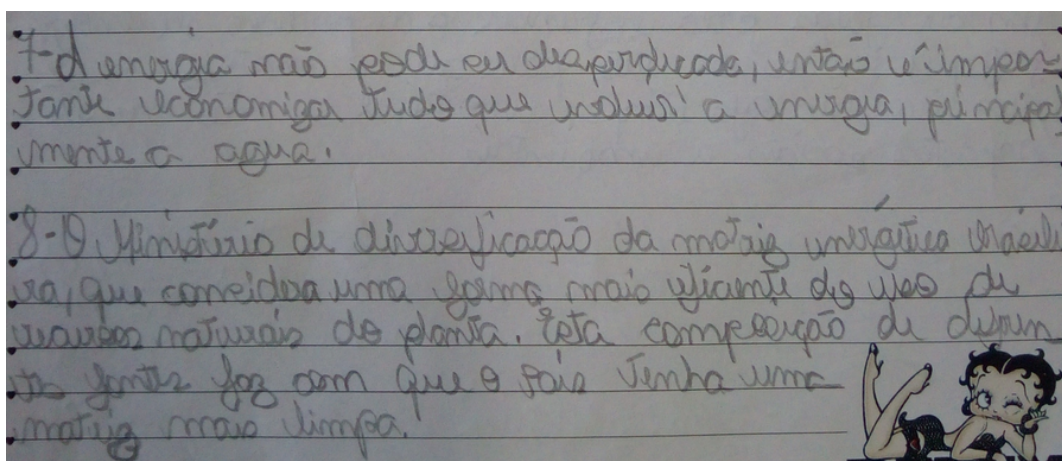 7-A energia não pode ser desperdiçada, então é impor-
tante economizar tudo que incluir a energia, principal
mente a agua.
8-O Ministério de diversificação da matriz energética brasilei
ra, que considera uma forma mais eficiente do uso de
recursos naturais do planta. Esta composição de diferen
tes fontes faz com que o país tenha uma
matriz mais limpa.